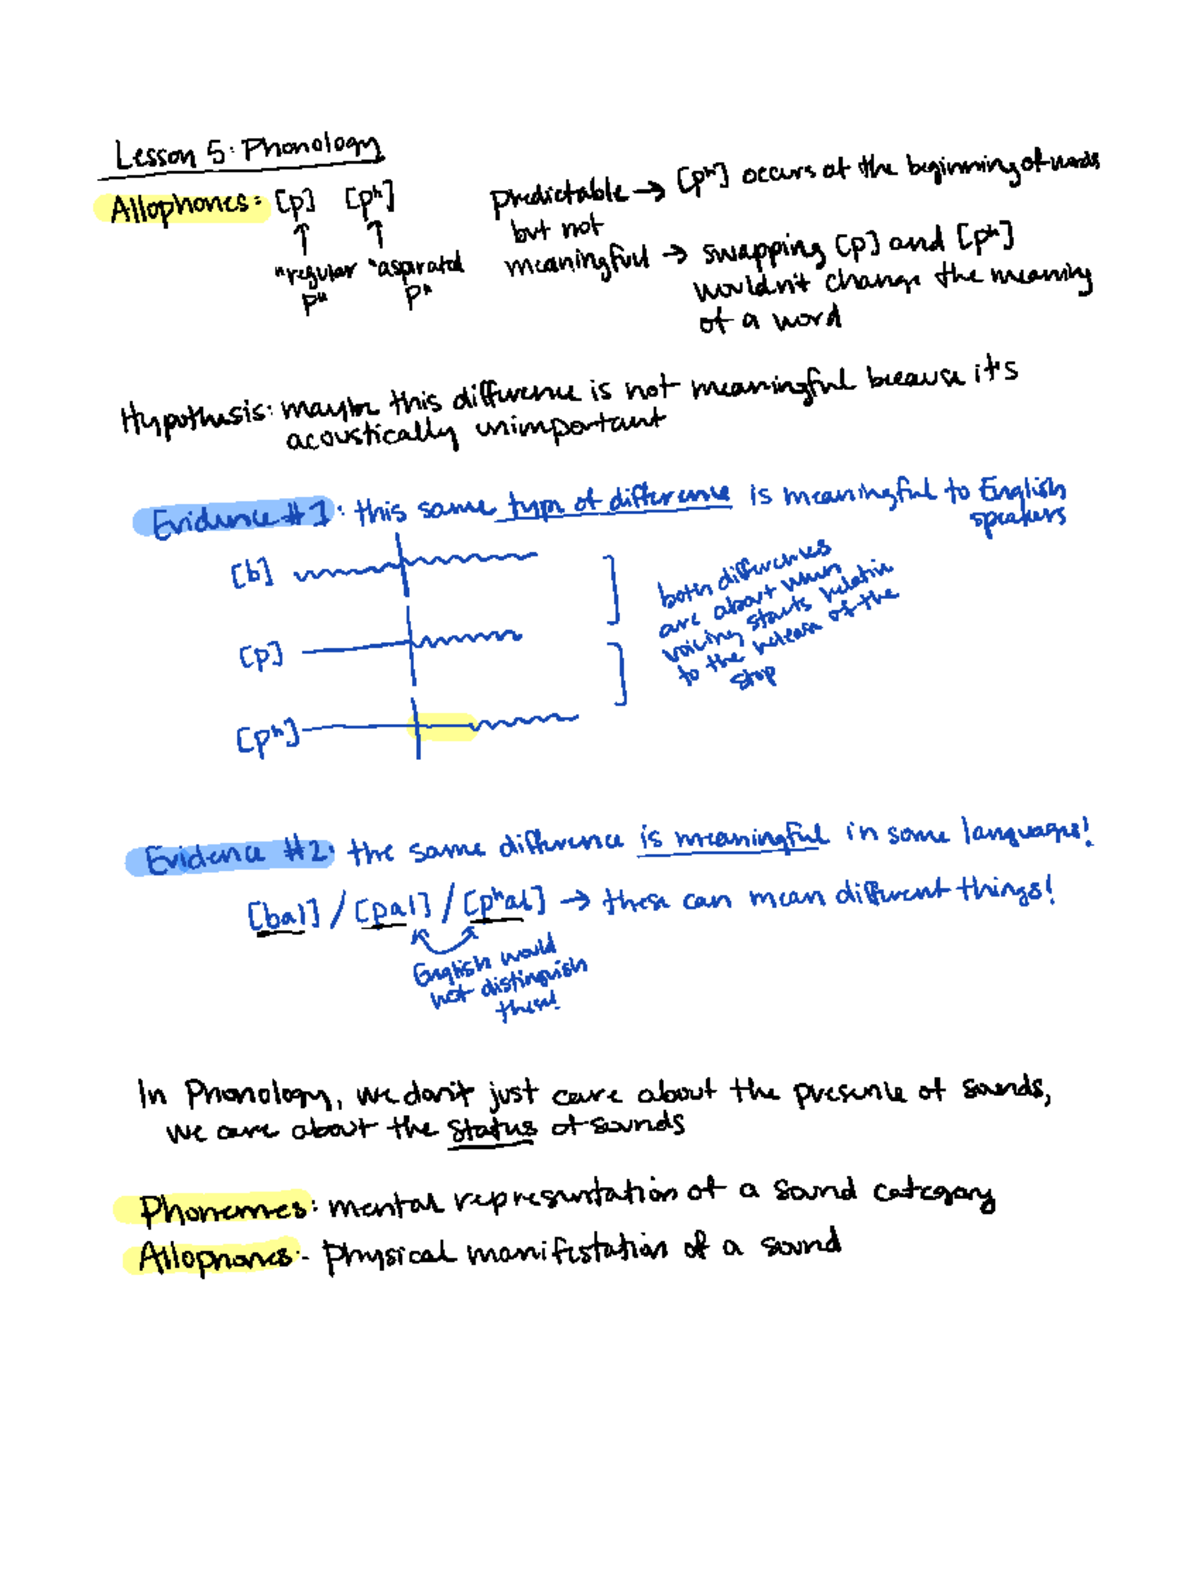 Lesson 5: Phonology
Allophones: [p] [pʰ]
"regular p"
"aspirated p"
Predictable → [pʰ] occurs at the beginning of words
but not
meaningful → swapping [p] and [pʰ]
wouldn't change the meaning
of a word
Hypothesis: maybe this difference is not meaningful because it's
acoustically unimportant
Evidence #1: this same type of difference is meaningful to English
speakers
[b]
[p]
[pʰ]
both differences
are about when
voicing starts relative
to the release of the
stop
Evidence #2: the same difference is meaningful in some languages!
[bal] / [pal] / [pʰal] → these can mean different things!
English would
not distinguish
these!
In Phonology, we don't just care about the presence of sounds,
we care about the status of sounds
Phonemes: mental representation of a sound category
Allophones: physical manifestation of a sound